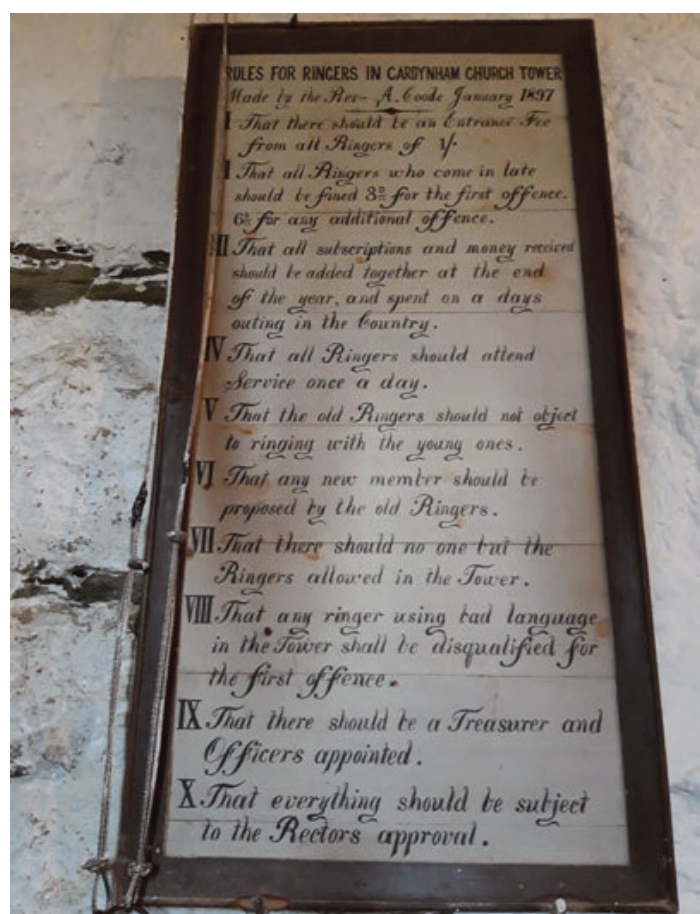 RULES FOR RINGERS IN CARDYNHAM CHURCH TOWER
Made by the Rev- A. Coode January 1897
I That there should be an Entrance Fee
from all Ringers of 1/-
I That all Ringers who come in late
should be fined 3D for the first offence.
6D for any additional offence.
III That all subscriptions and money received
should be added together at the end
of the year, and spent on a days
outing in the Country.
IV That all Ringers should attend
Service once a day.
V That the old Ringers should not object
to ringing with the young ones.
VI That any new member should be
proposed by the old Ringers.
VII That there should no one but the
Ringers allowed in the Tower.
VIII That any ringer using bad language
in the Tower shall be disqualified for
the first offence.
IX That there should be a Treasurer and
Officers appointed.
X That everything should be subject
to the Rectors approval.